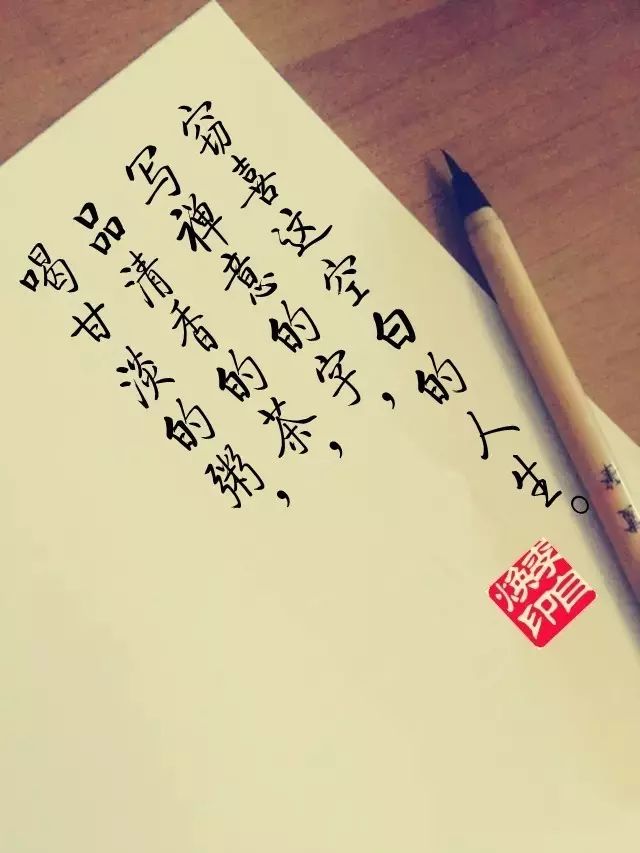 喝甘淡的粥，
品清香的茶，
写禅意的字，
窃喜这空白的人生。
李自焕印